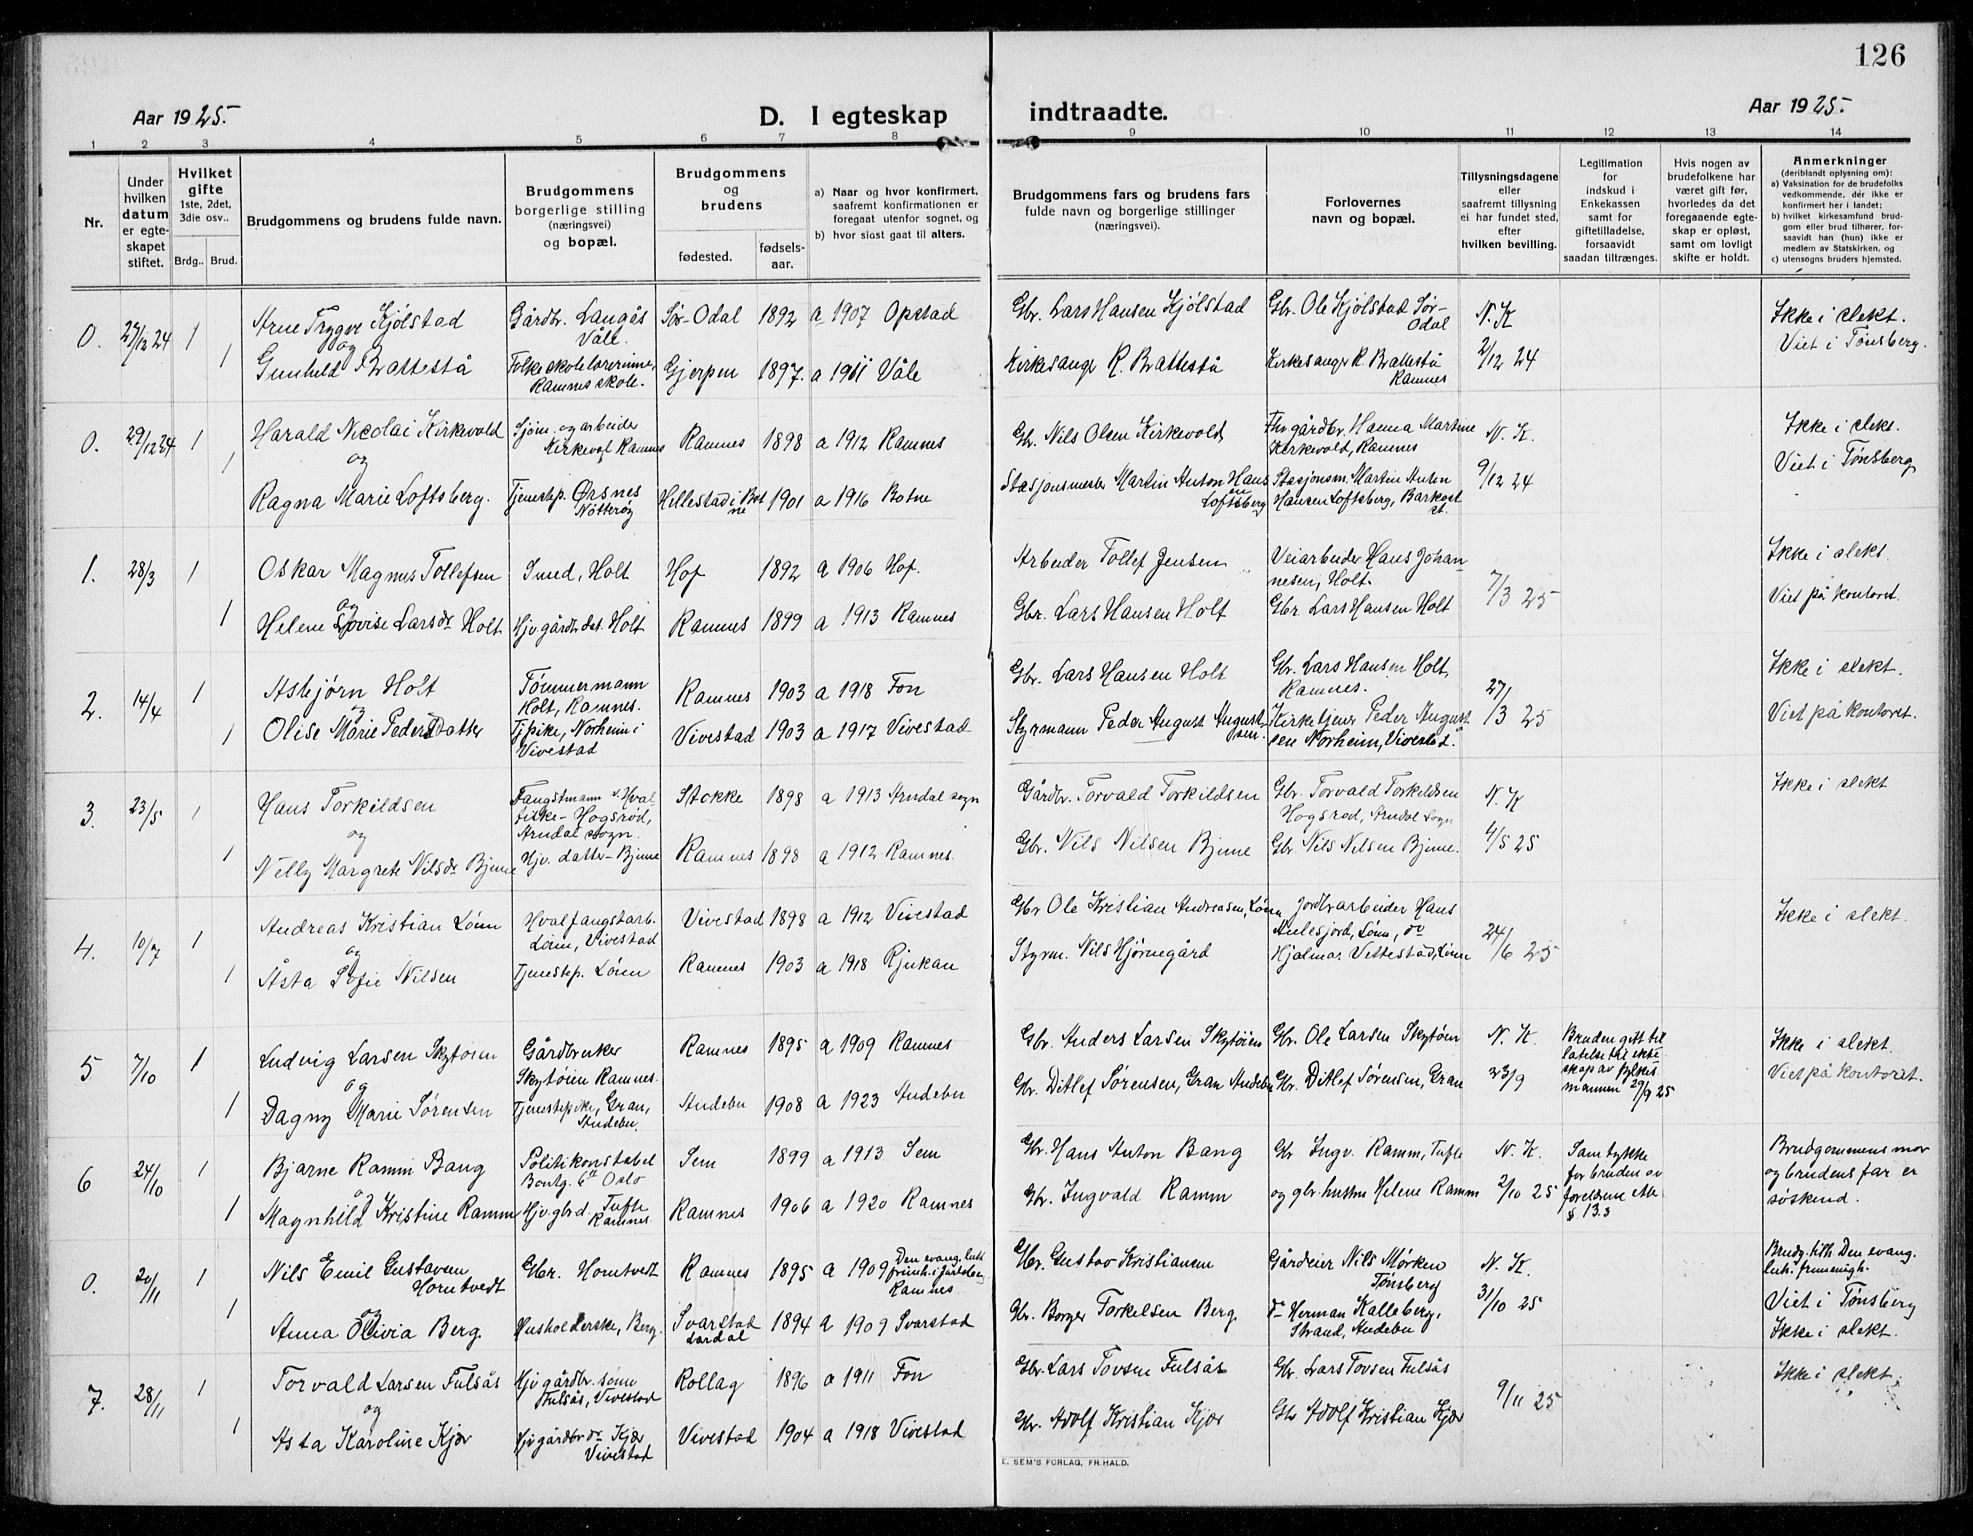 126
Aar 1925.
D. I egteskap indtraadte.
Aar 1925.
1 2 3 4 5 6 7 8 9 10 11 12 13 14
Nr.
Under hvilken datum er egteskapet stiftet.
Hvilket gifte 1ste, 2det, 3die osv..
Brdg.. Brud.
Brudgommens og brudens fulde navn.
Brudgommens borgerlige stilling (næringsvei) og bopæl.
Brudgommens og brudens
fødested. fødselsaar.
a) Naar og hvor konfirmert, saafremt konfirmationen er foregaat utenfor sognet, og
b) hvor sidst gaat til alters.
Brudgommens fars og brudens fars fulde navn og borgerlige stillinger (næringsvei).
Forlovernes navn og bopæl.
Tillysningsdagene eller saafremt tillysning ei har fundet sted, efter hvilken bevilling.
Legitimation for indskud i Enkekassen samt for giftetilladelse, forsaavidt saadan tiltrænges.
Hvis nogen av brudefolkene har været gift før, hvorledes da det foregaaende egteskap er opløst, samt om lovligt skifte er holdt.
Anmerkninger (deriblandt oplysning om):
a) Vaksination for de brudefolks vedkommende, dér ikke er konfirmert her i landet;
b) hvilket kirkesamfund brudgom eller brud tilhører, forsaavidt han (hun) ikke er medlem av Statskirken, og
c) utensogns bruders hjemsted.
0. 27/12 24 1 Arne Trygve Kjølstad Gårdbr. Langås Våle. Sør-Odal 1892 a 1907 Opstad Gbr. Lars Hansen Kjølstad Gbr. Ole Kjølstad Sør-Odal N. K Ikke i slekt.
og
1 Gunhild Brattestå Folkeskolelærerinne, Ramnes skole. Gjerpen 1897. a 1911 Våle Kirkesanger R. Brattestå Kirkesanger R. Brattestå Ramnes 2/12 24 Viet i Tønsberg.
0. 29/12 24 1 Harald Nicolai Kirkevold Sjøm. og arbeider Kirkevol Ramnes Ramnes 1898 a 1912 Ramnes Gbr. Nils Olsen Kirkevold Fhv gårdbr. Hanna Martine Kirkevold, Ramnes N. K. Ikke i slekt.
og
1 Ragna Marie Loftsberg. Tjenestep. Ørsnes Nøtterøy Hillestad i Botne 1901 a 1916 Botne Stasjonsmester Martin Anton Hansen Loftsberg Stasjonsm. Martin Anton Hansen Loftsberg, Barkost. 9/12 24 Viet i Tønsberg
1. 28/3 1 Oskar Magnus Tollefsen Smed, Holt Hof 1892 a 1906 Hof. Arbeider Tollef Jensen Veiarbeider Hans Johannesen, Holt 7/3 25 Ikke i slekt
og
1 Helene Lovise Larsdr Holt Hjv gårdbr dat. Holt Ramnes 1899 a 1913 Ramnes Gbr. Lars Hansen Holt Gbr Lars Hansen Holt Viet på kontoret.
2. 14/4 1 Asbjørn Holt Tømmermann Holt, Ramnes. Ramnes 1903 a 1918 Fon Gbr. Lars Hansen Holt Gbr. Lars Hansen Holt, Ramnes. 27/3 25 Ikke i slekt.
og
1 Olise Marie Pedersdatter Tjpike, Norheim i Vivestad Vivestad 1903 a 1917 Vivestad Styrmann Peder August Augustsen. Kirketjener Peder Augustsen Norheim, Vivestad. Viet på kontoret.
3. 23/5 1 Hans Torkildsen Fangstmann v. Hvalfiske - Hogsrød, Arndal sogn. Stokke 1898 a 1913 Arndal sogn Gårdbr. Torvald Torkildsen Gbr. Torvald Torkildsen Hogsrød, Arndal sogn N. K Ikke i slekt
og
1 Nelly Margrete Nilsdr Bjune Hjv. datter - Bjune Ramnes 1898 a 1912 Ramnes. Gbr. Nils Nilsen Bjune Gbr Nils Nilsen Bjune. 4/5 25
4. 10/7 1 Andreas Kristian Lønn Hvalfangstarb. Lønn, Vivestad Vivestad 1898 a 1912 Vivestad Gbr Ole Kristian Andreasen, Lønn Jordbrarbeider Hans Aulesjord, Lønn, do 24/6 25 Ikke i slekt.
og
1 Åsta Sofie Nilsen Tjenestep. Lønn Ramnes 1903 a 1918 Rjukan Styrm. Nils Hjørnegård Hjalmar Vettestad, Lønn
5 7/10 1 Ludvig Larsen Skytøien Gårdbruker Skytøien Ramnes. Ramnes 1895 a 1909 Ramnes Gbr. Anders Larsen Skytøien Gbr. Ole Larsen Skytøien N. K. Bruden gitt tillatelse til ekteskap av fylkesmannen 29/9 25 Ikke i slekt.
og
1 Dagny Marie Sørensen Tjenestepike, Gran, Andebu. Andebu 1908 a 1923 Andebu Gbr. Ditlef Sørensen, Gran Andebu Gbr. Ditlef Sørensen, Gran 23/9 Viet på kontoret.
6 24/10 1 Bjarne Ramm Bang Politikonstabel Bontg. 6 Oslo Sem 1899 a 1913 Sem Gbr. Hans Anton Bang Gbr Ingv. Ramm, Tufte N. K. Samtykke for bruden av foreldrene etc § 13.3 Brudgommens mor og brudens far er søskend.
og
1 Magnhild Kristine Ramm Hjv. gbrd. Tufte Ramnes Ramnes 1906 a 1920 Ramnes Gbr. Ingvald Ramm og gbr. hustru Helene Ramm 2/10 25
0. 20/11 1 Nils Emil Gustavsen Horntvedt Gbr. Horntvedt Ramnes 1895 a 1909 Den evang. luth frimh. i Jarlsberg Ramnes Gbr. Gustav Kristiansen Gårdeier Nils Mørken Tønsberg N. K. Brudg. tilh. Den evang. luth. frimenigh.
og
1 Anna Olivia Berg. Husholderske, Berg. Svarstad Lardal 1894 a 1909 Svarstad Gbr. Borger Torkelsen Berg. do Herman Kalleberg, Strand, Andebu 31/10 25 Viet i Tønsberg Ikke i slekt.
7. 28/11 1 Torvald Larsen Fulsås Hjv gårdbr. sønn Fulsås, Vivestad Rollag 1896 a 1911 Fon Gbr. Lars Tovsen Fulsås Gbr. Lars Tovsen Fulsås 9/11 25 Ikke i slekt.
og
1 Asta Karoline Kjær Hjv gårdbr dr Kjær Vivestad Vivestad 1904 a 1918 Vivestad Gbr. Adolf Kristian Kjær Gbr Adolf Kristian Kjær
E. SEM'S FORLAG, FR.HALD.